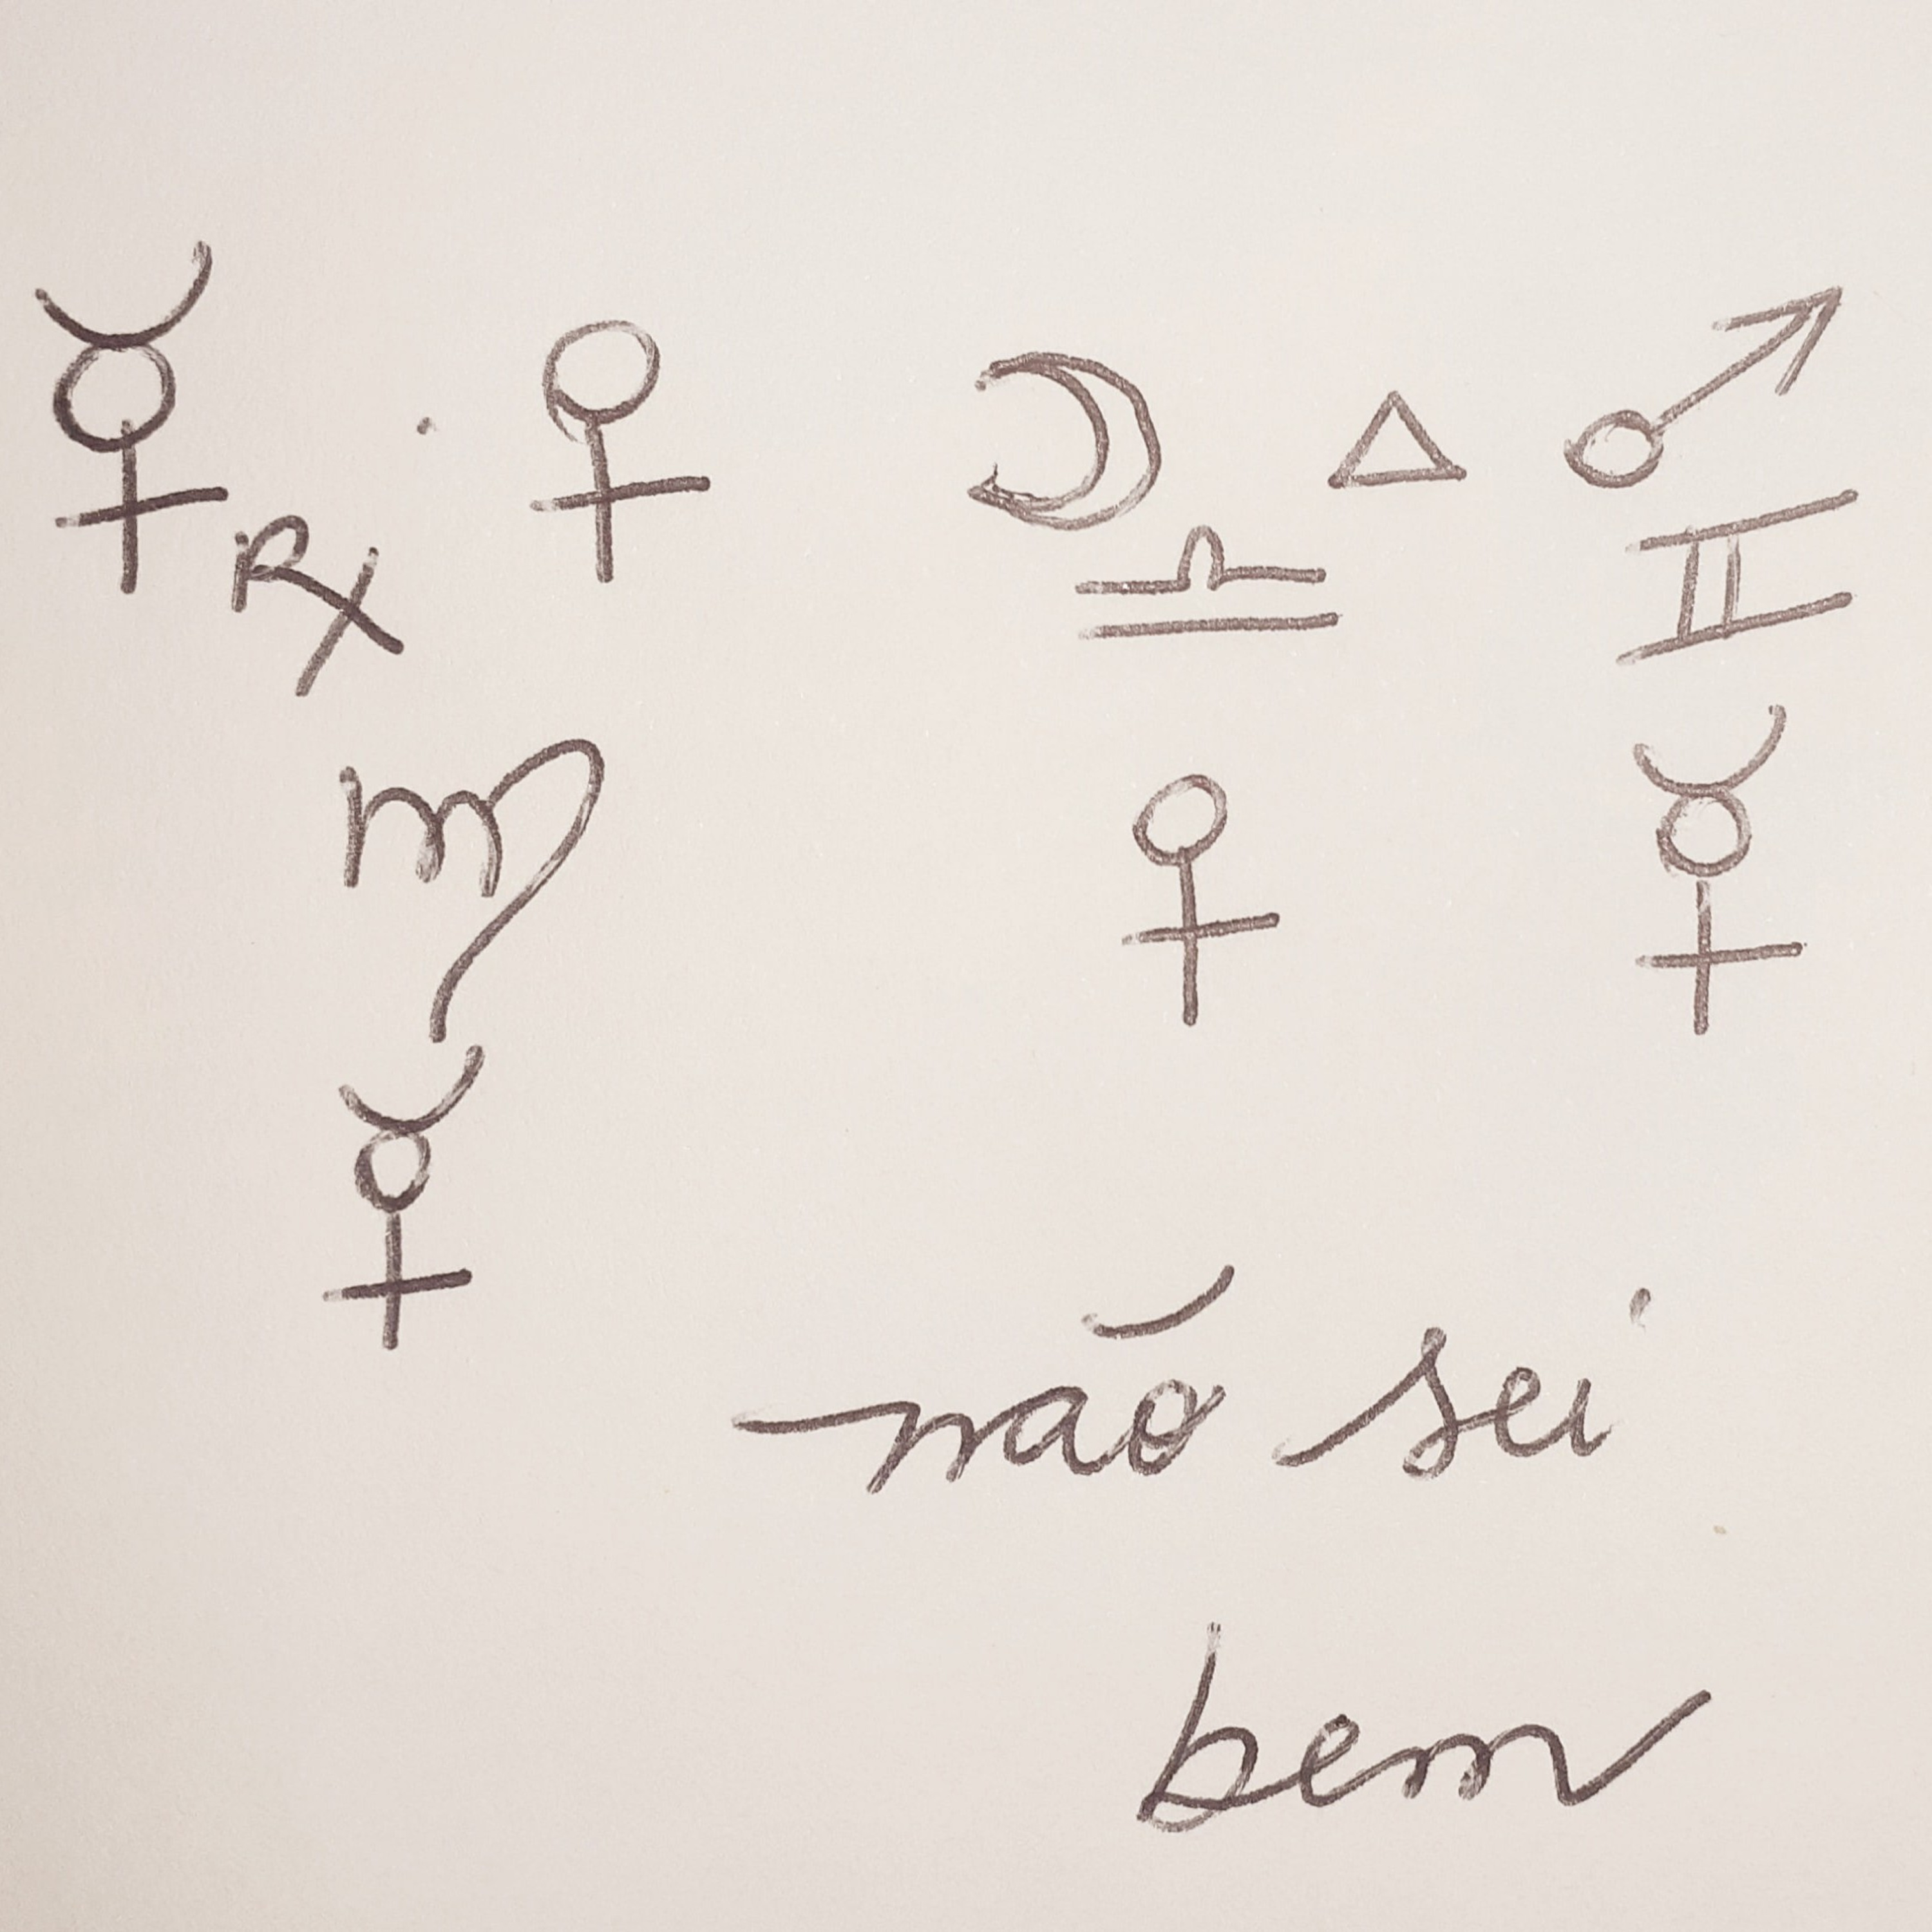 ☿℞ · ♀ ☽ △ ♂
♎ ♊
♍ ♀ ☿
☿
não sei
bem